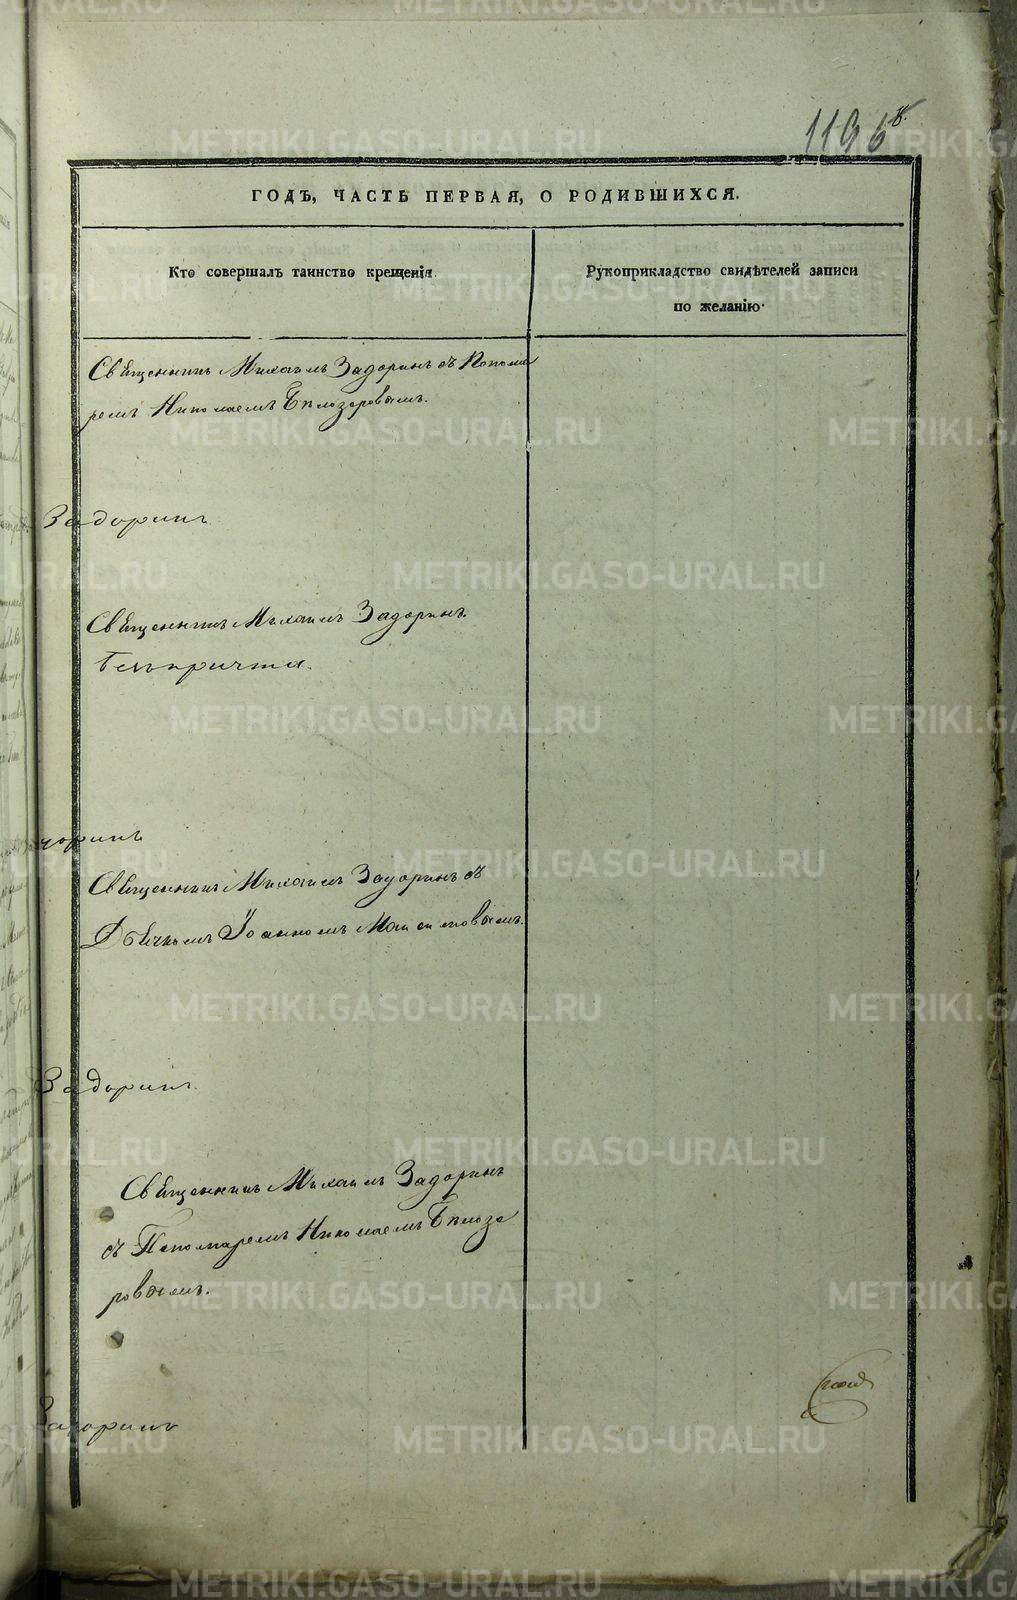 1196
ГОДЪ, ЧАСТЬ ПЕРВАЯ, О РОДИВШИХСЯ.
Кто совершалъ таинство крещенія.
Рукоприкладство свидѣтелей записи
по желанію.
Священникъ Михаилъ Задоринъ съ Понома
ремъ Николаемъ Бѣлозеровымъ.
Задоринъ
Священникъ Михаилъ Задоринъ.
безъ причта.
доринъ
Священникъ Михаилъ Задоринъ съ
Дьячкомъ Іоанномъ
Задоринъ
Священникъ Михаилъ Задоринъ
съ Пономаремъ Николаемъ Бѣлозе
ровымъ.
Задоринъ
METRIKI.GASO-URAL.RU